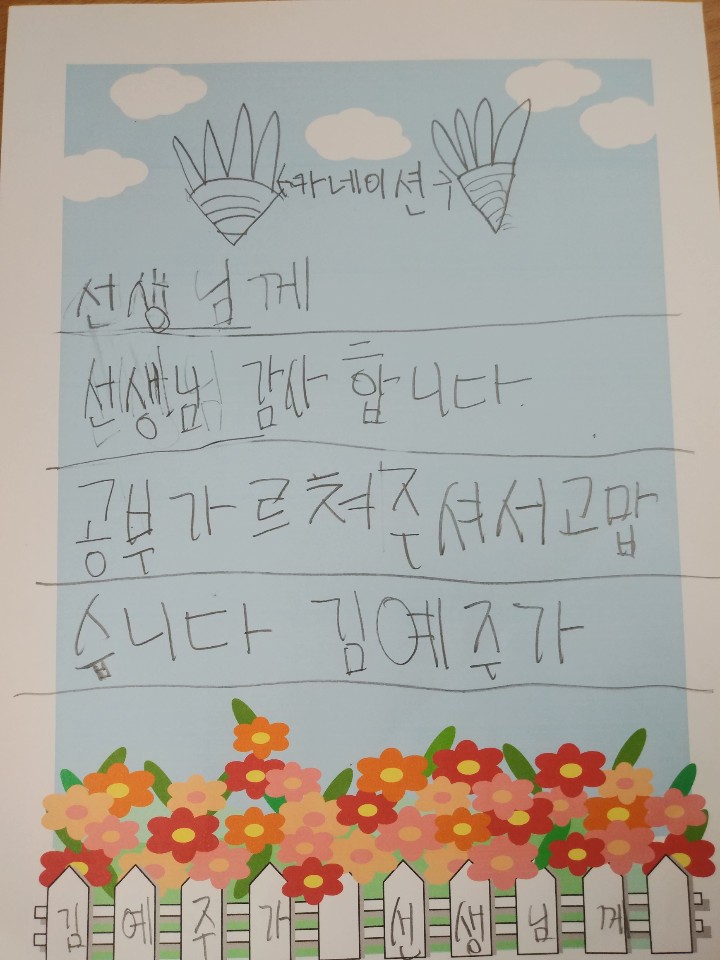 카네이션
선생님께
선생님 감사합니다.
공부가르쳐주셔서고맙
습니다 김예주가
김예주가 선생님께